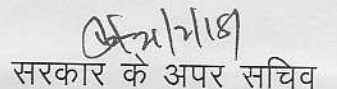 21/2/18
सरकार के अपर सचिव